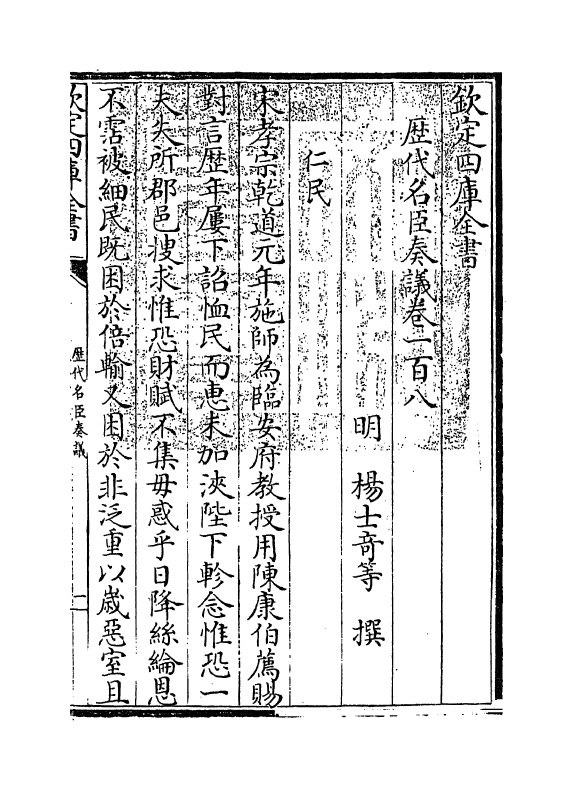 欽定四庫全書
歷代名臣奏議卷一百八
明 楊士奇等 撰
仁民
宋孝宗乾道元年施師為臨安府教授用陳康伯薦賜
對言歷年屢下詔恤民而惠未加浹陛下軫念惟恐一
夫失所郡邑搜求惟恐財賦不集毋惑乎日降絲綸恩
不霑被細民既困於倍輸又困於非泛重以歲惡室且
欽定四庫全書
歷代名臣奏議